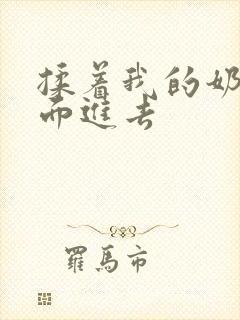 揉着我的奶
而進去
羅馬市